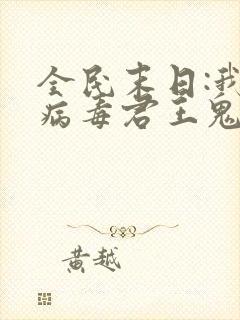 全民末日:我
病毒君王鬼
黄越